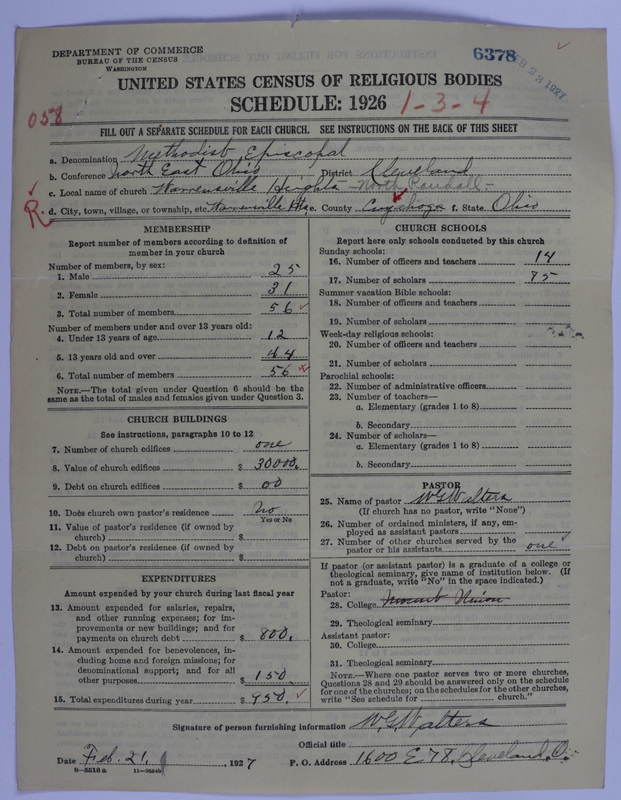 DEPARTMENT OF COMMERCE
BUREAU OF THE CENSUS
WASHINGTON
6378
FEB 23 1927
UNITED STATES CENSUS OF RELIGIOUS BODIES
SCHEDULE: 1926 1-3-4
058
FILL OUT A SEPARATE SCHEDULE FOR EACH CHURCH. SEE INSTRUCTIONS ON THE BACK OF THIS SHEET
a. Denomination Methodist Episcopal
b. Conference North East Ohio District Cleveland
c. Local name of church Warrensville Heights - North Randall -
R d. City, town, village, or township, etc. Warrensville Hts e. County Cuyahoga f. State Ohio
MEMBERSHIP
Report number of members according to definition of
member in your church
Number of members, by sex:
1. Male 25
2. Female 31
3. Total number of members 56
Number of members under and over 13 years old:
4. Under 13 years of age 12
5. 13 years old and over 44
6. Total number of members 56
NOTE.—The total given under Question 6 should be the
same as the total of males and females given under Question 3.
CHURCH BUILDINGS
See instructions, paragraphs 10 to 12
7. Number of church edifices one
8. Value of church edifices $ 30000.
9. Debt on church edifices $ 00
10. Does church own pastor's residence No
Yes or No
11. Value of pastor's residence (if owned by
church) $
12. Debt on pastor's residence (if owned by
church) $
EXPENDITURES
Amount expended by your church during last fiscal year
13. Amount expended for salaries, repairs,
and other running expenses; for im-
provements or new buildings; and for
payments on church debt $ 800.
14. Amount expended for benevolences, in-
cluding home and foreign missions; for
denominational support; and for all
other purposes $ 150
15. Total expenditures during year $ 950.
CHURCH SCHOOLS
Report here only schools conducted by this church
Sunday schools:
16. Number of officers and teachers 14
17. Number of scholars 85
Summer vacation Bible schools:
18. Number of officers and teachers
19. Number of scholars
Week-day religious schools:
20. Number of officers and teachers
21. Number of scholars
Parochial schools:
22. Number of administrative officers
23. Number of teachers—
a. Elementary (grades 1 to 8)
b. Secondary
24. Number of scholars—
a. Elementary (grades 1 to 8)
b. Secondary
PASTOR
25. Name of pastor W G Walters
(If church has no pastor, write "None")
26. Number of ordained ministers, if any, em-
ployed as assistant pastors
27. Number of other churches served by the
pastor or his assistants one
If pastor (or assistant pastor) is a graduate of a college or
theological seminary, give name of institution below. (If
not a graduate, write "No" in the space indicated.)
Pastor:
28. College Mount Union
29. Theological seminary
Assistant pastor:
30. College
31. Theological seminary
NOTE.—Where one pastor serves two or more churches,
Questions 28 and 29 should be answered only on the schedule
for one of the churches; on the schedules for the other churches,
write "See schedule for church."
Signature of person furnishing information W. G. Walters
Official title
Date Feb. 21, 1927 P. O. Address 1600 E 78, Cleveland, O.
8—5518 a 11—9524b